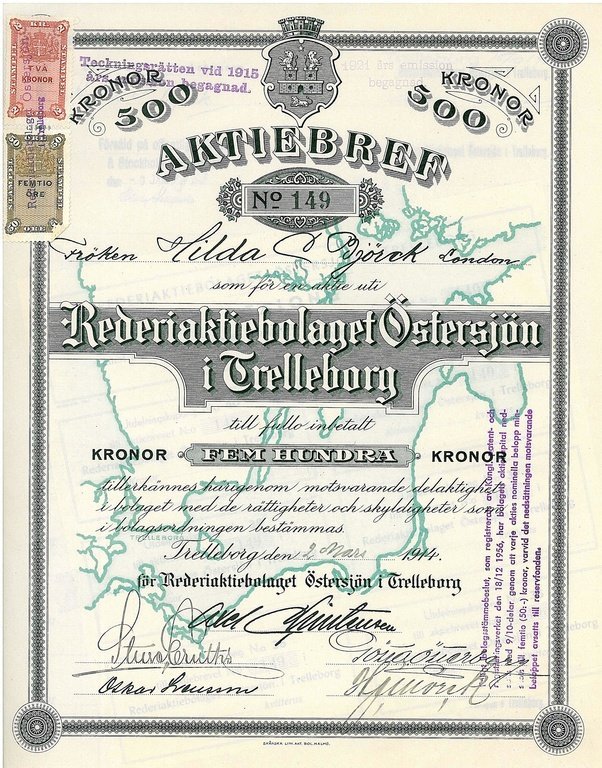 TVÅ
KRONOR
FEMTIO
ÖRE
Teckningsrätten vid 1915
års emission begagnad.
1921 års emission
begagnad.
KRONOR
500
KRONOR
500
AKTIEBREF
No 149
Fröken Hilda C Björck London
som för en aktie uti
Rederiaktiebolaget Östersjön
i Trelleborg
till fullo inbetalt
KRONOR FEM HUNDRA KRONOR
tillerkännes härigenom motsvarande delaktighet
i bolaget med de rättigheter och skyldigheter som
i bolagsordningen bestämmas.
TRELLEBORG
Trelleborg den 2 Mars 1914.
för Rederiaktiebolaget Östersjön i Trelleborg
Axel
Oskar
bolagsstämmobeslut, som registrerats av Kungl. Patent- och
registreringsverket den 18/12 1956, har bolagets aktiekapital ned-
satts med 9/10-delar genom att varje akties nominella belopp min-
skats till femtio (50:-) kronor, varvid det nedsättningen motsvarande
beloppet avsatts till reservfonden.
SKÅNSKA LITH. AKT. BOL. MALMÖ.